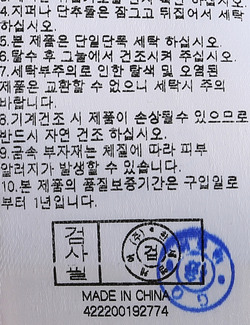 4.지퍼나 단추물은 잠그고 뒤집어서 세탁
하십시오.
5.본 제품은 단일단독 세탁 하십시오.
6.탈수 후 그늘에서 건조시켜 주십시오.
7.세탁부주의로 인한 탈색 및 오염된
제품은 교환할 수 없으니 세탁시 주의
바랍니다.
8.기계건조 시 제품이 손상될수 있으므로
반드시 자연 건조 하십시오.
9.금속 부자재는 체질에 따라 피부
알러지가 발생할 수 있습니다.
10.본 제품의 품질보증기간은 구입일로
부터 1년입니다.
검사필
(주)
검
MADE IN CHINA
422200192774